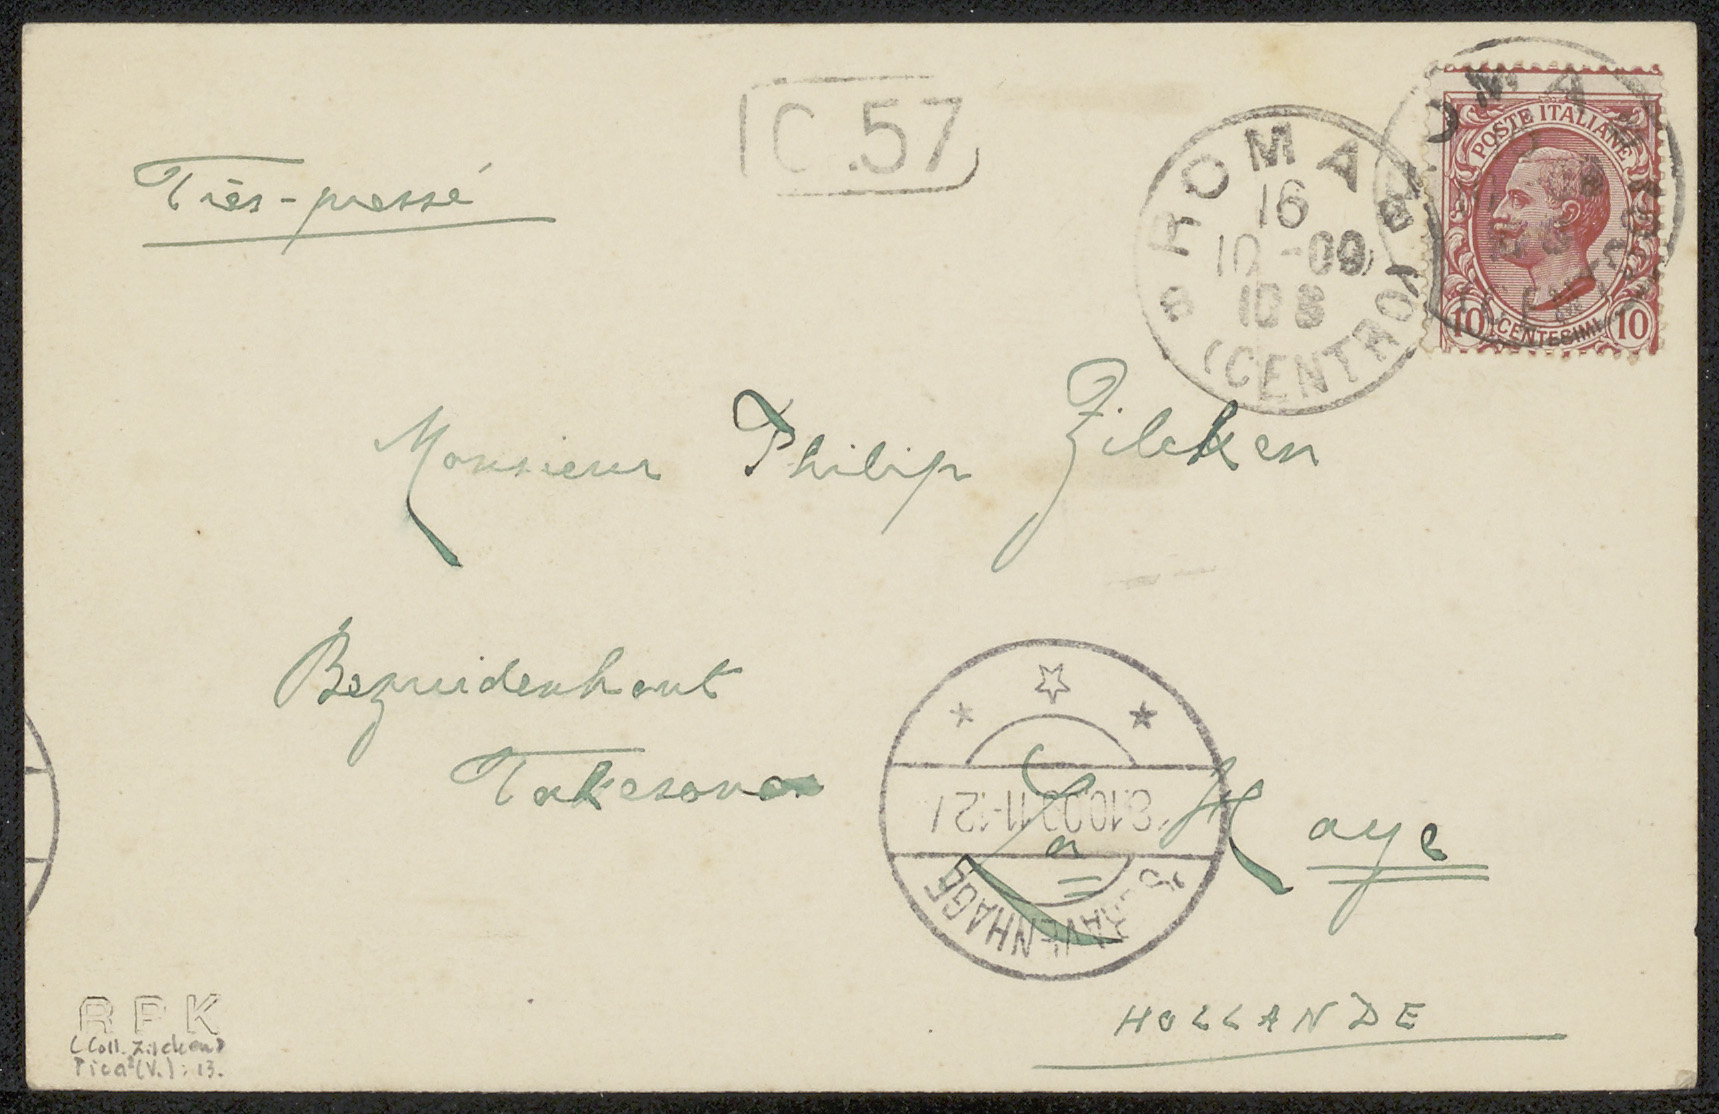 C.57
Très-pressé
ROMA
16
10 - 09
10 8
(CENTRO)
POSTE ITALIANE
10 CENTESIMI 10
Monsieur Philip Zilcken
Bezuidenhout
La Haye
18.10.09 11-12
'S GRAVENHAGE
HOLLANDE
RPK
(Coll. Zilcken)
Pica²(V.): 13.